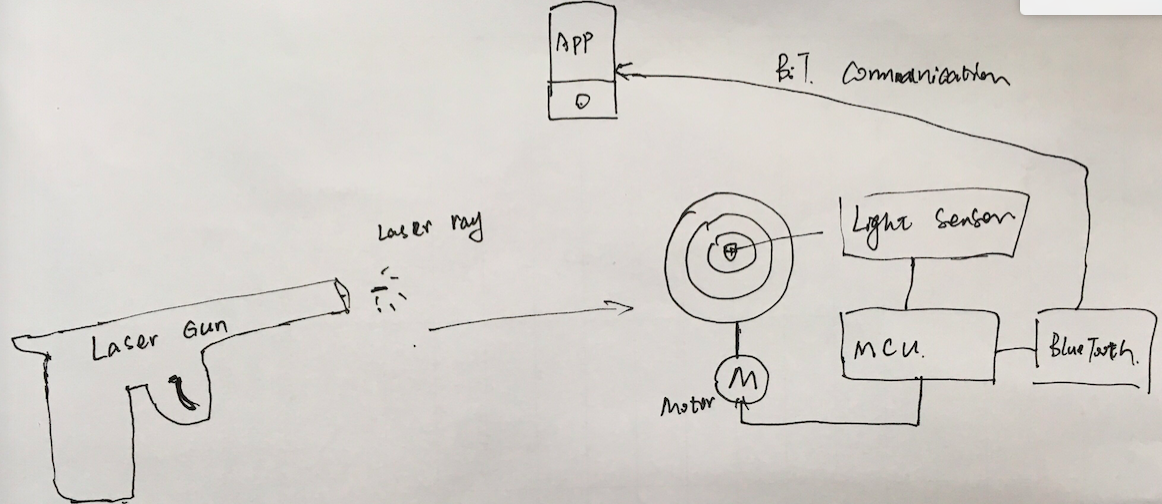 APP
B.T. Communication
Laser ray
Light Sensor
Laser Gun
MCU.
BlueTooth.
M
Motor